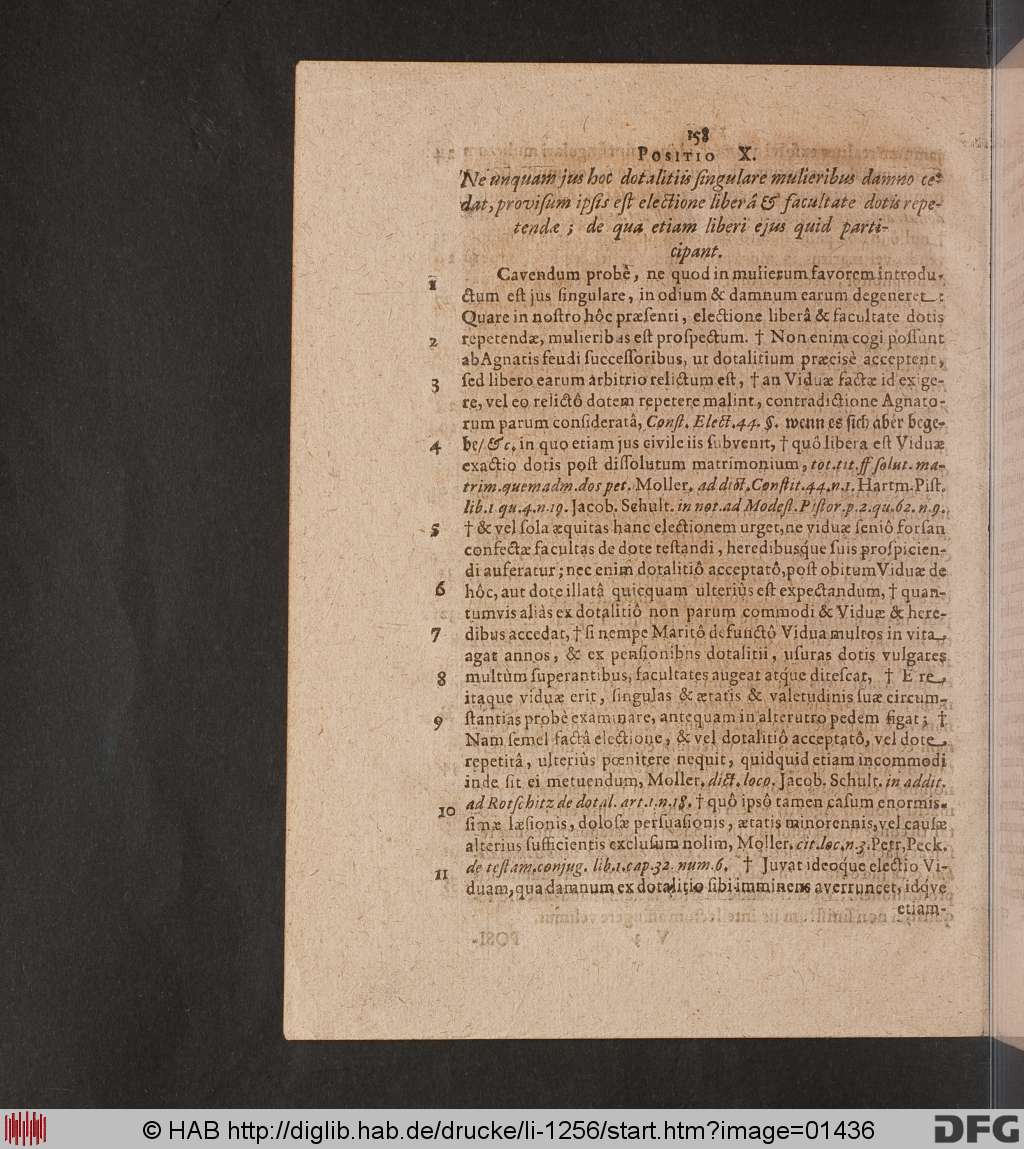 158
POSITIO X.
Ne unquam jus hoc dotalitiis singulare mulieribus damno ce-
dat, provisum ipsis est electione liberâ & facultate dotis repe-
tendæ ; de qua etiam liberi ejus quid parti-
cipant.
1 Cavendum probè, ne quod in mulierum favorem introdu-
ctum est jus singulare, in odium & damnum earum degeneret :
Quare in nostro hôc præsenti, electione liberâ & facultate dotis
2 repetendæ, mulieribus est prospectum. † Non enim cogi possunt
ab Agnatis feudi successoribus, ut dotalitium præcisè acceptent,
3 sed libero earum arbitrio relictum est, † an Viduæ factæ id exige-
re, vel eo relictô dotem repetere malint, contradictione Agnato-
rum parum consideratâ, Const. Elect. 44. §. wenn es sich aber bege-
4 be/ &c. in quo etiam jus civile iis subvenit, † quô libera est Viduæ
exactio dotis post dissolutum matrimonium, tot. tit. ff solut. ma-
trim. quemadm. dos pet. Moller. ad dict. Constit. 44. n. 1. Hartm. Pist.
lib. 1 qu. 4. n. 19. Jacob. Schult. in not. ad Modest. Pistor. p. 2. qu. 62. n. 9.
5 † & vel sola æquitas hanc electionem urget, ne viduæ seniô forsan
confectæ facultas de dote testandi, heredibusque suis prospicien-
di auferatur; nec enim dotalitiô acceptatô, post obitum Viduæ de
6 hôc, aut dote illatâ quicquam ulteriùs est expectandum, † quan-
tumvis aliàs ex dotalitiô non parum commodi & Viduæ & here-
7 dibus accedat, † si nempe Maritô defunctô Vidua multos in vita
agat annos, & ex pensionibns dotalitii, usuras dotis vulgares
8 multùm superantibus, facultates augeat atque ditescat, † E re
itaque viduæ erit, singulas & ætatis & valetudinis suæ circum-
9 stantias probè examinare, antequam in alterutro pedem figat; †
Nam semel factâ electione, & vel dotalitiô acceptatô, vel dote
repetitâ, ulteriùs pœnitere nequit, quidquid etiam incommodi
inde sit ei metuendum, Moller. dict. loco. Jacob. Schult. in addit.
10 ad Rotschitz de dotal. art. 1. n. 18. † quô ipsô tamen casum enormis-
simæ læsionis, dolosæ persuasionis, ætatis minorennis, vel causæ
alterius sufficientis exclusum nolim, Moller. cit. loc. n. 3. Petr. Peck.
11 de testam. conjug. lib. 1. cap. 32. num. 6. † Juvat ideoque electio Vi-
duam, qua damnum ex dotalitio sibi imminens averruncet, idqve
etiam-
© HAB http://diglib.hab.de/drucke/li-1256/start.htm?image=01436
DFG